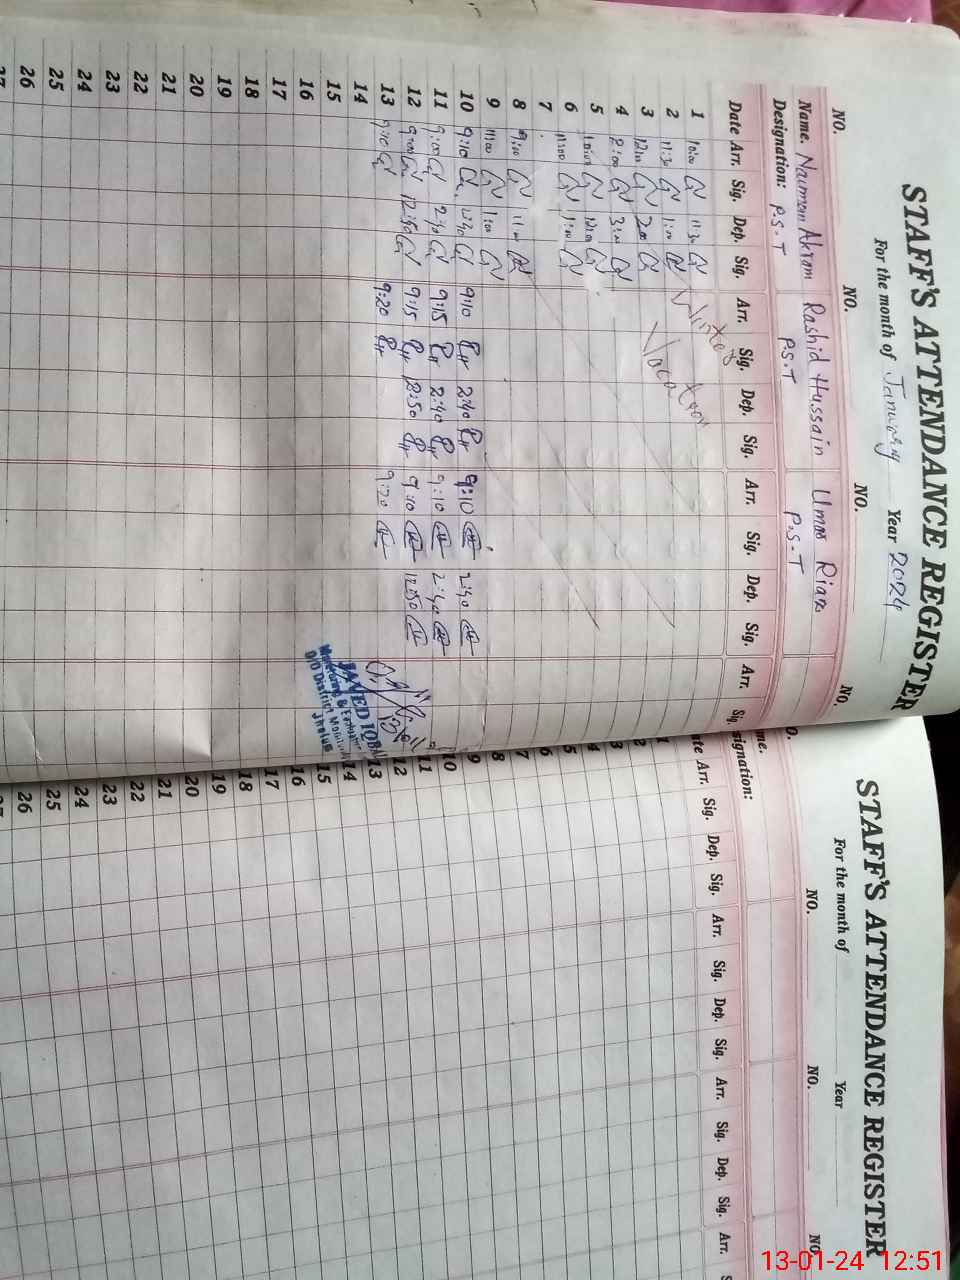 STAFF'S ATTENDANCE REGISTER
For the month of January Year 2024
NO. NO. NO. NO.
Name. Nauman Akram Rashid Hussain Umar Riaz
Designation: P.S.T P.S.T P.S.T
Date Arr. Sig. Dep. Sig. Arr. Sig. Dep. Sig. Arr. Sig. Dep. Sig. Arr. Sig.
1 10:00 11:30
2 11:30 1:00
3 12:00 2:00
4 2:00 3:00
5 10:00 12:00
6 11:00 1:00
7
8 9:00 11:00
9 11:00 1:00
10 9:10 2:40 9:10 2:40 9:10 2:40
11 9:00 2:40 9:15 2:40 9:10 2:40
12 9:00 12:50 9:15 12:50 9:10 12:50
13 9:10 9:20 9:20
14
15
16
17
18
19
20
21
22
23
24
25
26
27
Winter
Vacation
JAVED IQBAL
Monitoring &
O/O District
Jhelum
STAFF'S ATTENDANCE REGISTER
For the month of Year
NO. NO. NO.
Date Arr. Sig. Dep. Sig. Arr. Sig. Dep. Sig. Arr. Sig. Dep. Sig. Arr.
1
2
3
4
5
6
7
8
9
10
11
12
13
14
15
16
17
18
19
20
21
22
23
24
25
26
27
13-01-24 12:51